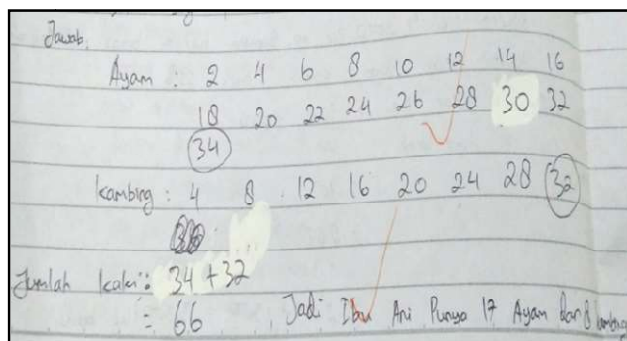 Jawab.
Ayam : 2 4 6 8 10 12 14 16
18 20 22 24 26 28 30 32
34
kambing : 4 8 12 16 20 24 28 32
Jumlah kaki : 34 + 32
= 66 Jadi Ibu Ani Punya 17 Ayam dan 8 kambing